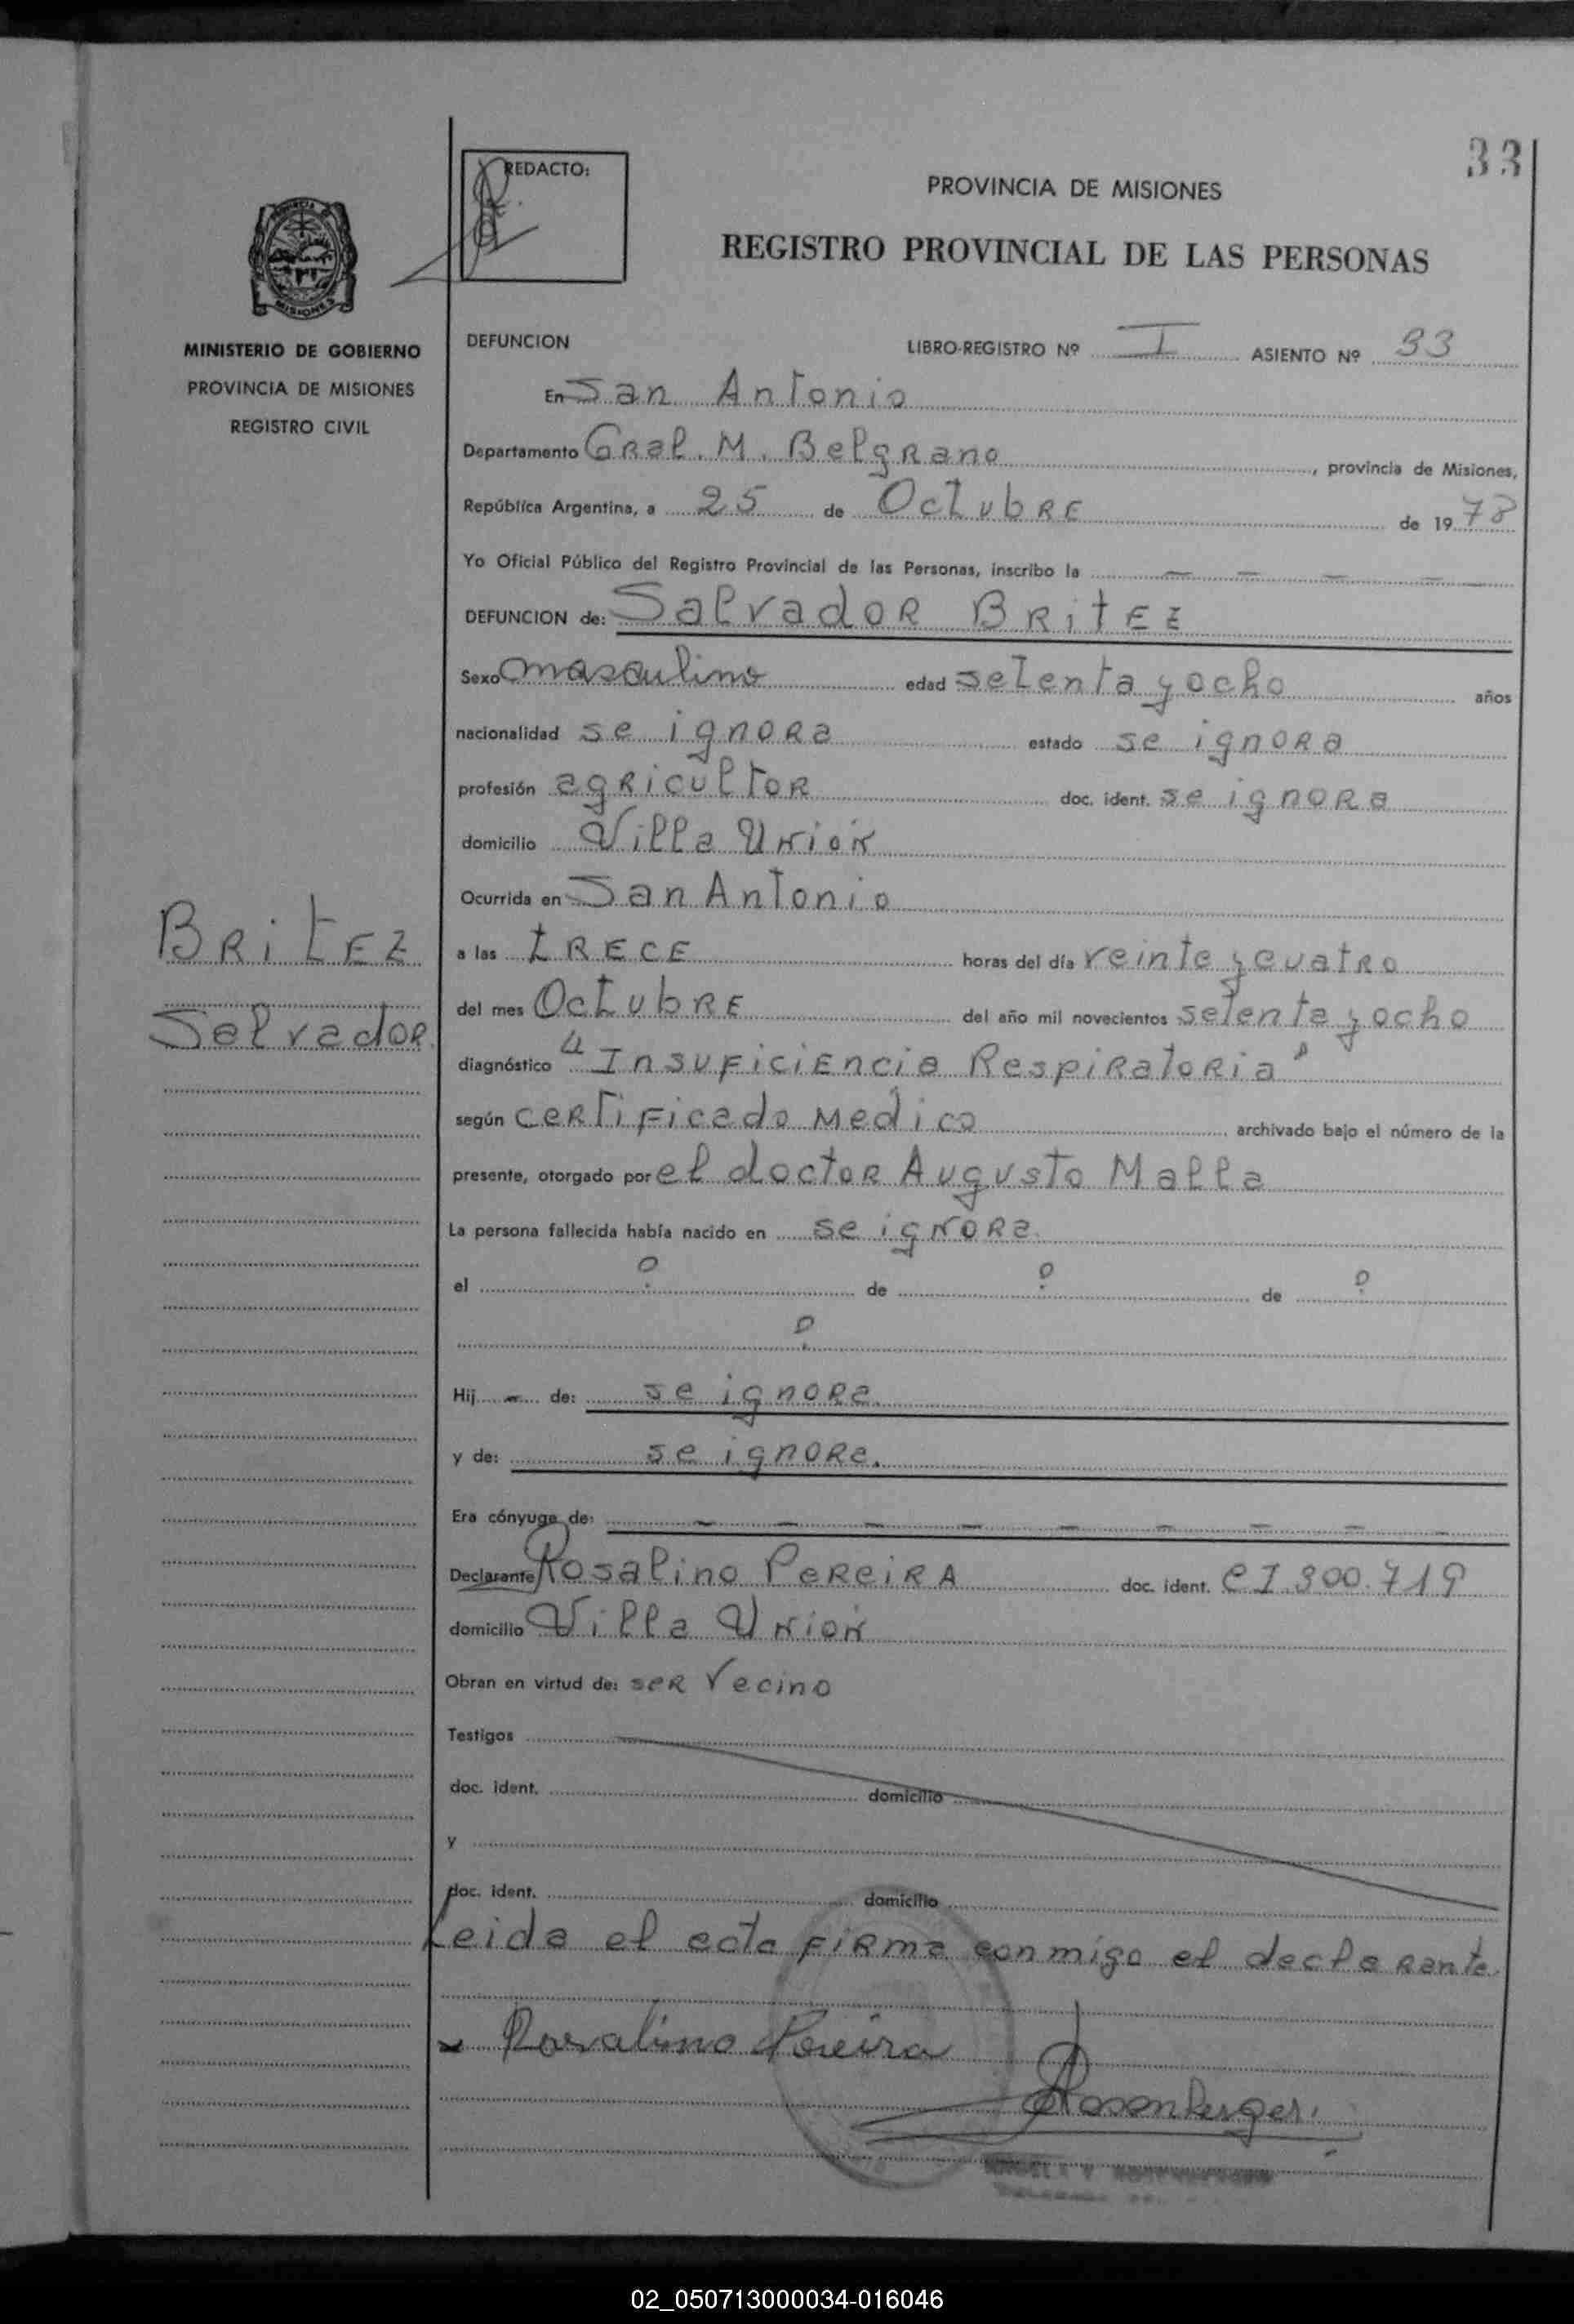 33
REDACTO:
PROVINCIA DE MISIONES
REGISTRO PROVINCIAL DE LAS PERSONAS
PROVINCIA DE
MISIONES
MINISTERIO DE GOBIERNO
PROVINCIA DE MISIONES
REGISTRO CIVIL
BRITEZ
Salvador
DEFUNCION LIBRO-REGISTRO Nº I ASIENTO Nº 33
En San Antonio
Departamento Gral. M. Belgrano, provincia de Misiones,
República Argentina, a 25 de Octubre de 1978
Yo Oficial Público del Registro Provincial de las Personas, inscribo la — — — —
DEFUNCION de: Salvador Britez
Sexo masculino edad setenta y ocho años
nacionalidad se ignora estado se ignora
profesión agricultor doc. ident. se ignora
domicilio Villa Unión
Ocurrida en San Antonio
a las trece horas del día veinte y cuatro
del mes Octubre del año mil novecientos setenta y ocho
diagnóstico "Insuficiencia Respiratoria"
según certificado medico archivado bajo el número de la
presente, otorgado por el doctor Augusto Malla
La persona fallecida había nacido en se ignora.
el ? de ? de ?
?
Hij — de: se ignora.
y de: se ignora.
Era cónyuge de: — — — — — — — — —
Declarante Rosalino Pereira doc. ident. CI 300.719
domicilio Villa Unión
Obran en virtud de: ser vecino
Testigos
doc. ident. domicilio
y
doc. ident. domicilio
Leida el acta firma conmigo el declarante.
Rosalino Pereira
Rosenberger
02_050713000034-016046